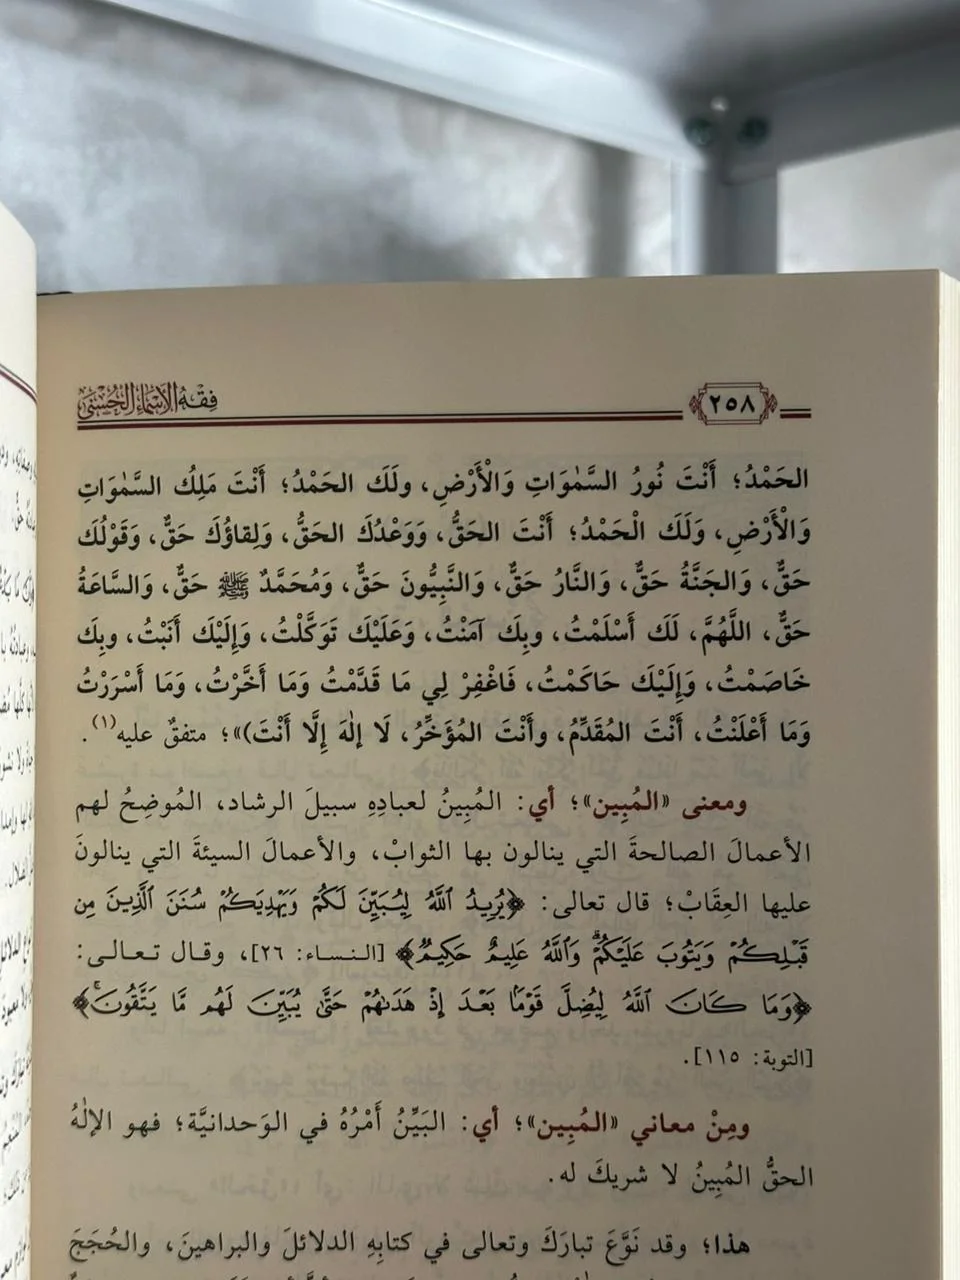 ٢٥٨
فِقْهُ الأَسْمَاءِ الْحُسْنَى
الحَمْدُ؛ أَنْتَ نُورُ السَّمٰوَاتِ وَالْأَرْضِ، ولَكَ الحَمْدُ؛ أَنْتَ مَلِكُ السَّمٰوَاتِ
وَالْأَرْضِ، وَلَكَ الْحَمْدُ؛ أَنْتَ الحَقُّ، وَوَعْدُكَ الحَقُّ، وَلِقاؤُكَ حَقٌّ، وَقَوْلُكَ
حَقٌّ، وَالجَنَّةُ حَقٌّ، وَالنَّارُ حَقٌّ، وَالنَّبِيُّونَ حَقٌّ، وَمُحَمَّدٌ ﷺ حَقٌّ، وَالسَّاعَةُ
حَقٌّ، اللَّهُمَّ، لَكَ أَسْلَمْتُ، وبِكَ آمَنْتُ، وَعَلَيْكَ تَوَكَّلْتُ، وَإِلَيْكَ أَنَبْتُ، وبِكَ
خَاصَمْتُ، وَإِلَيْكَ حَاكَمْتُ، فَاغْفِرْ لِي مَا قَدَّمْتُ وَمَا أَخَّرْتُ، وَمَا أَسْرَرْتُ
وَمَا أَعْلَنْتُ، أَنْتَ المُقَدِّمُ، وأَنْتَ المُؤَخِّرُ، لَا إلٰهَ إِلَّا أَنْتَ)»؛ متفقٌ عليه(١).
ومعنى «المُبِين»؛ أي: المُبِينُ لعبادِهِ سبيلَ الرشاد، المُوضِحُ لهم
الأعمالَ الصالحةَ التي ينالون بها الثوابْ، والأعمالَ السيئةَ التي ينالونَ
عليها العِقَابْ؛ قال تعالى: ﴿يُرِيدُ ٱللَّهُ لِيُبَيِّنَ لَكُمْ وَيَهْدِيَكُمْ سُنَنَ ٱلَّذِينَ مِن
قَبْلِكُمْ وَيَتُوبَ عَلَيْكُمْۗ وَٱللَّهُ عَلِيمٌ حَكِيمٌ﴾ [النساء: ٢٦]، وقـال تـعـالـى:
﴿وَمَا كَانَ ٱللَّهُ لِيُضِلَّ قَوْمًۢا بَعْدَ إِذْ هَدَىٰهُمْ حَتَّىٰ يُبَيِّنَ لَهُم مَّا يَتَّقُونَۚ﴾
[التوبة: ١١٥].
ومِنْ معاني «المُبِين»؛ أي: البَيِّنُ أَمْرُهُ في الوَحدانيَّة؛ فهو الإلٰهُ
الحقُّ المُبِينُ لا شريكَ له.
هذا؛ وقد نَوَّعَ تبارَكَ وتعالى في كتابِهِ الدلائلَ والبراهينَ، والحُجَجَ